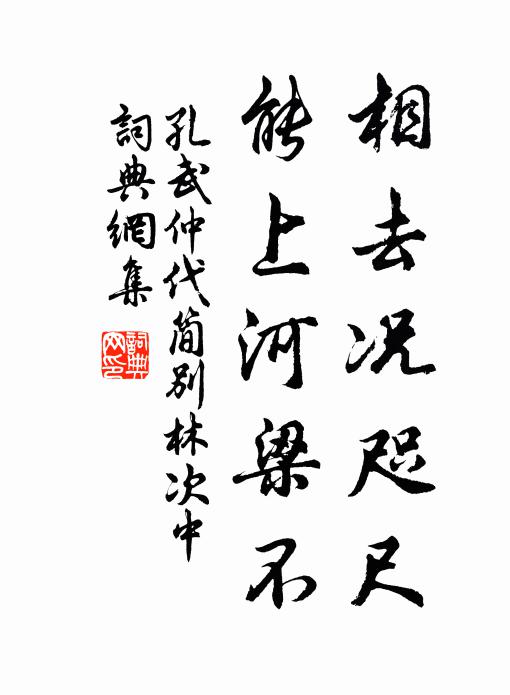 相去况咫尺
能上河梁不
孔武仲代简别林次中
詞典網集
詞典网印